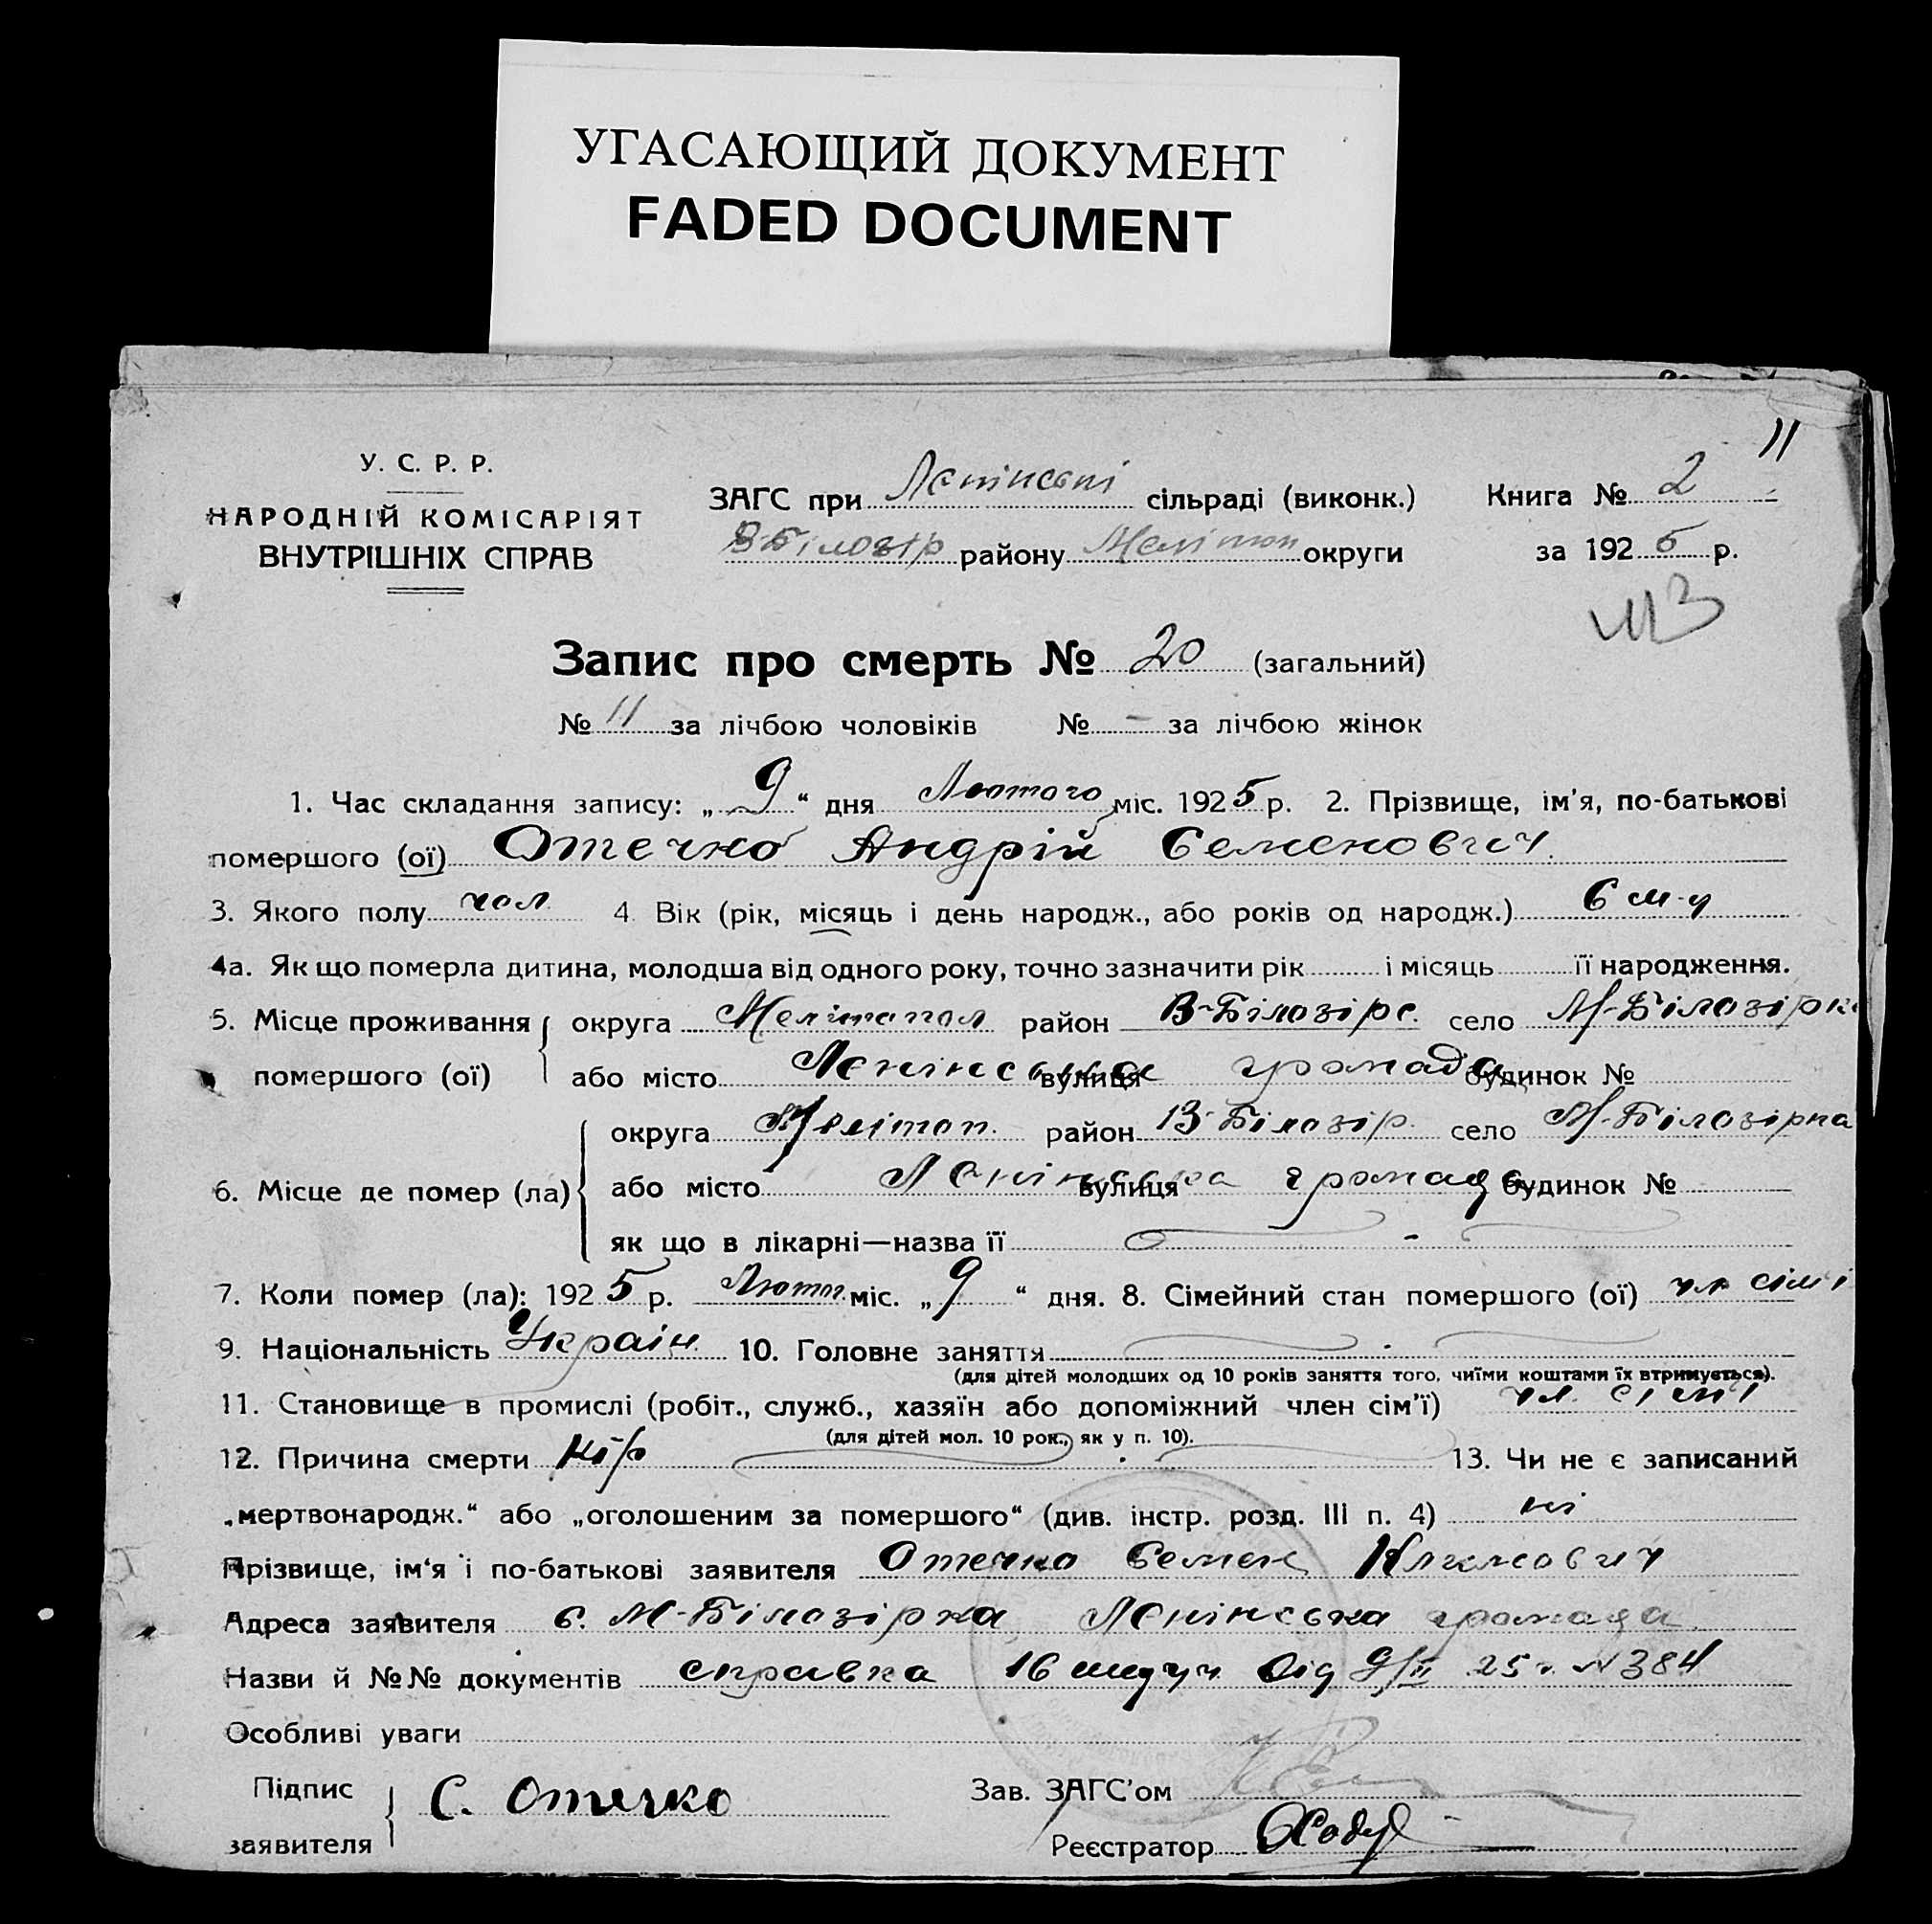 УГАСАЮЩИЙ ДОКУМЕНТ
FADED DOCUMENT
11
У. С. Р. Р.
НАРОДНІЙ КОМІСАРІЯТ
ВНУТРІШНІХ СПРАВ
ЗАГС при Лєнінські сільраді (виконк.) Книга № 2
В-Білозір району Мелітоп округи за 1925 р.
Запис про смерть № 20 (загальний)
№ 11 за лічбою чоловіків № - за лічбою жінок
1. Час складання запису: „9“ дня Лютого міс. 1925 р. 2. Прізвище, ім'я, по-батькові
помершого (ої) Отечко Андрій Семенович.
3. Якого полу чол. 4. Вік (рік, місяць і день народж., або років од народж.) 6 м-ц
4а. Як що померла дитина, молодша від одного року, точно зазначити рік і місяць її народження.
5. Місце проживання помершого (ої) округа Мелітопол район В-Білозірс. село М-Білозірка
або місто Лєнінська вулиця громада будинок №
6. Місце де помер (ла) округа Мелітоп. район В-Білозір. село М-Білозірка
або місто Лєнінська вулиця громада будинок №
як що в лікарні—назва її
7. Коли помер (ла): 1925 р. Лютог. міс. „9“ дня. 8. Сімейний стан помершого (ої) чл. сімї
9. Національність Україн. 10. Головне заняття
(для дітей молодших од 10 років заняття того, чиїми коштами їх втримується).
11. Становище в промислі (робіт., служб., хазяїн або допоміжний член сім'ї) чл. сімї
(для дітей мол. 10 рок., як у п. 10).
12. Причина смерти кір 13. Чи не є записаний
„мертвонародж.“ або „оголошеним за помершого“ (див. інстр. розд. III п. 4) ні
Прізвище, ім'я і по-батькові заявителя Отечко Семен Климович
Адреса заявителя с. М-Білозірка Лєнінська громада
Назви й №№ документів справка 16 від 9/II 25 г. N 384
Особливі уваги
Підпис заявителя С. Отечко
Зав. ЗАГС'ом
Реєстратор